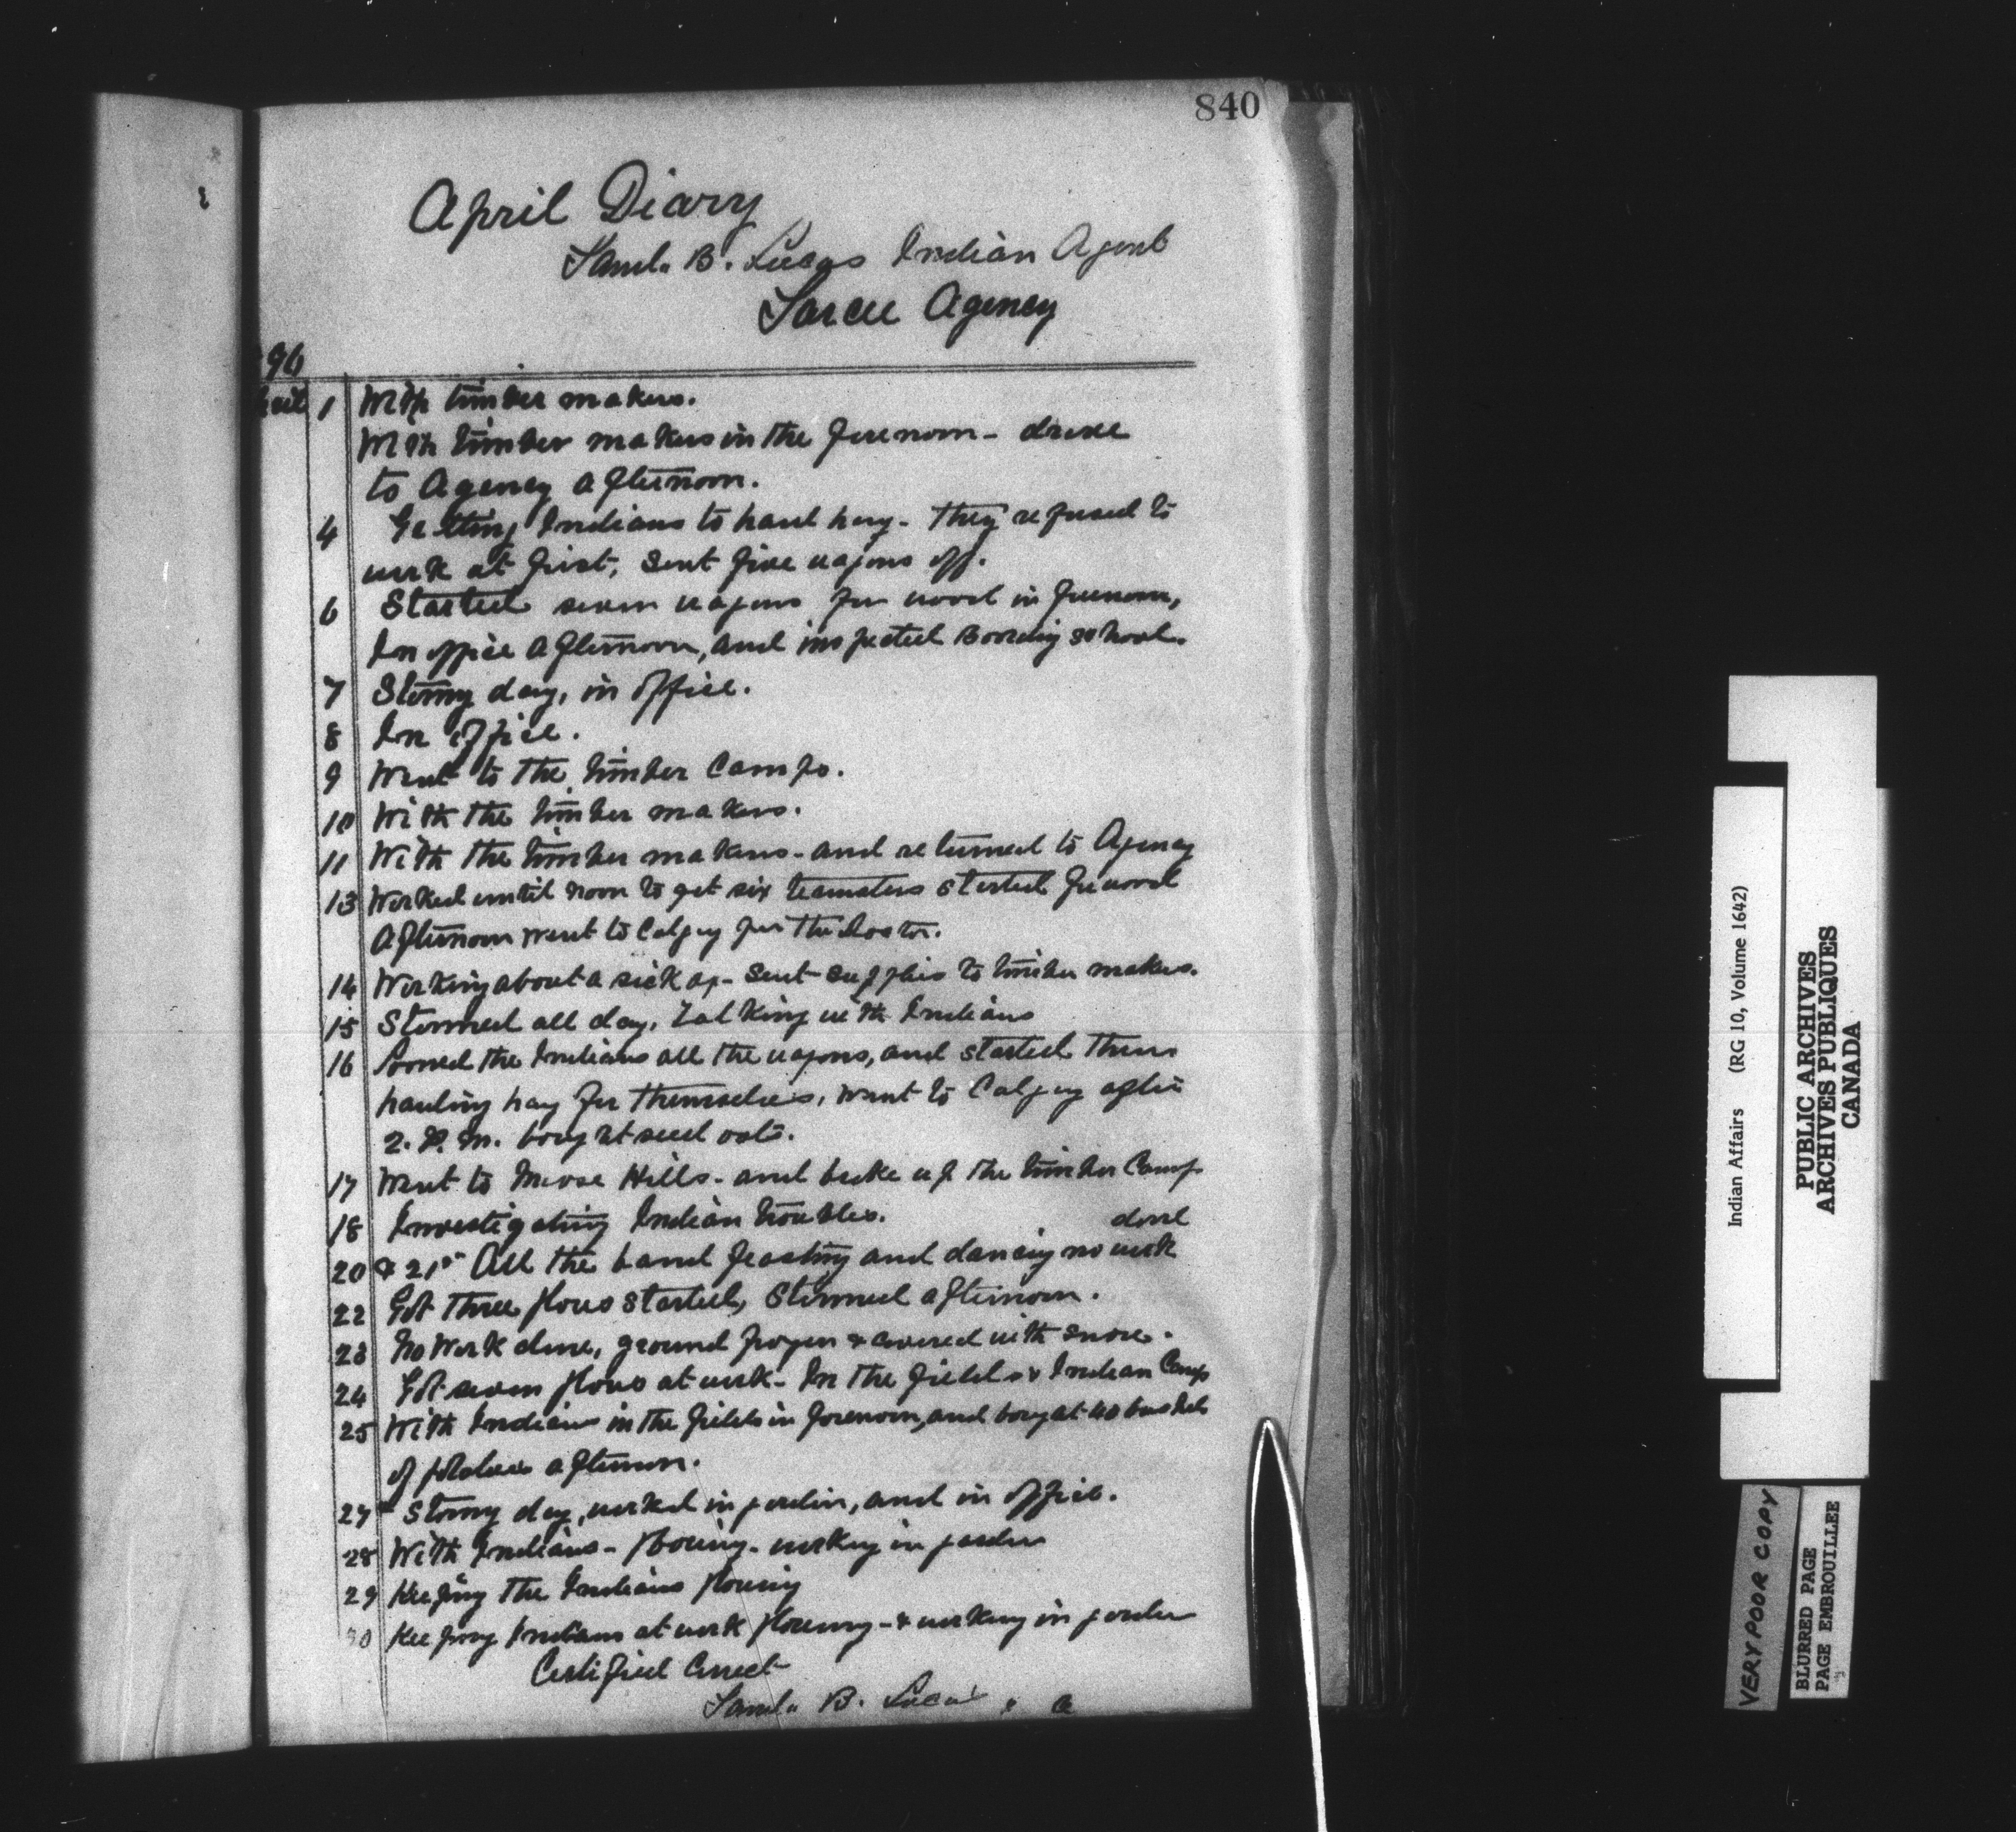 840
April Diary
Saml. B. Lucas Indian Agent
Sarcee Agency
96
April 1 With timber makers.
With timber makers in the forenoon - drove
to Agency afternoon.
4 Getting Indians to haul hay - they refused to
work at first, sent five wagons off.
6 Started seven wagons for wood in forenoon,
In office afternoon, and inspected Boarding school.
7 Stormy day, in office.
8 In office.
9 Went to the timber Camps.
10 With the timber makers.
11 With the timber makers - and returned to Agency
13 Worked until noon to get six teamsters started for wood
Afternoon went to Calgary for the Doctor.
14 Working about a sick - sent supplies to timber makers.
15 Stormed all day, Talking with Indians
16 Loaned the Indians all the wagons, and started them
hauling hay for themselves, went to Calgary after
2. P. M. bought seed oats.
17 Went to Moose Hills - and broke up the timber Camp
18 Investigating Indian troubles.
done
20 & 21st All the band feasting and dancing no work
22 Got three plows started, Stormed afternoon.
23 No Work done, ground frozen & covered with snow.
24 Got seven plows at work - In the fields & Indian Camp
25 With Indians in the fields in forenoon, and bought 40 bushels
of potatoes afternoon.
27th Stormy day, worked in garden, and in office.
28 With Indians - plowing - working in garden
29 Keeping the Indians plowing
30 Keeping Indians at work plowing - & working in garden
Certified Correct
Saml. B. Lucas
Indian Affairs (RG 10, Volume 1642)
PUBLIC ARCHIVES
ARCHIVES PUBLIQUES
CANADA
VERY POOR COPY
BLURRED PAGE
PAGE EMBROUILLEE